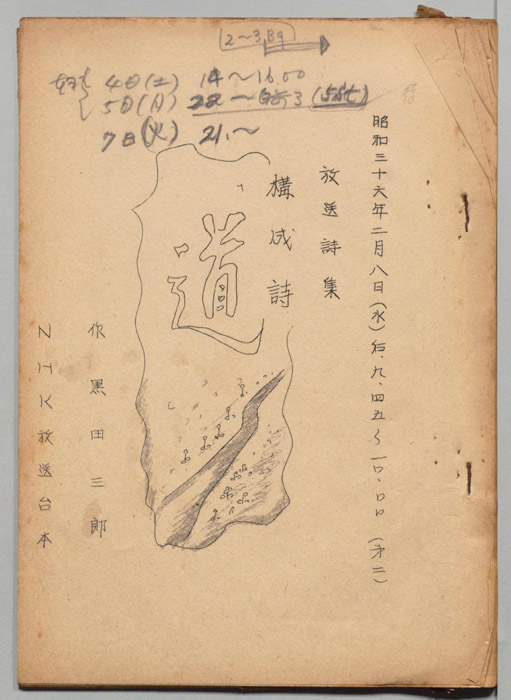 2〜3,Bg
4日(土) 14〜16.00
5日(日) 22〜 3 (55st)
7日(火) 21.〜
昭和三十六年二月八日(水)后.九.四五〜一〇.〇〇(第二)
放送詩集
構成詩
道
作 黒田三郎
NHK放送台本